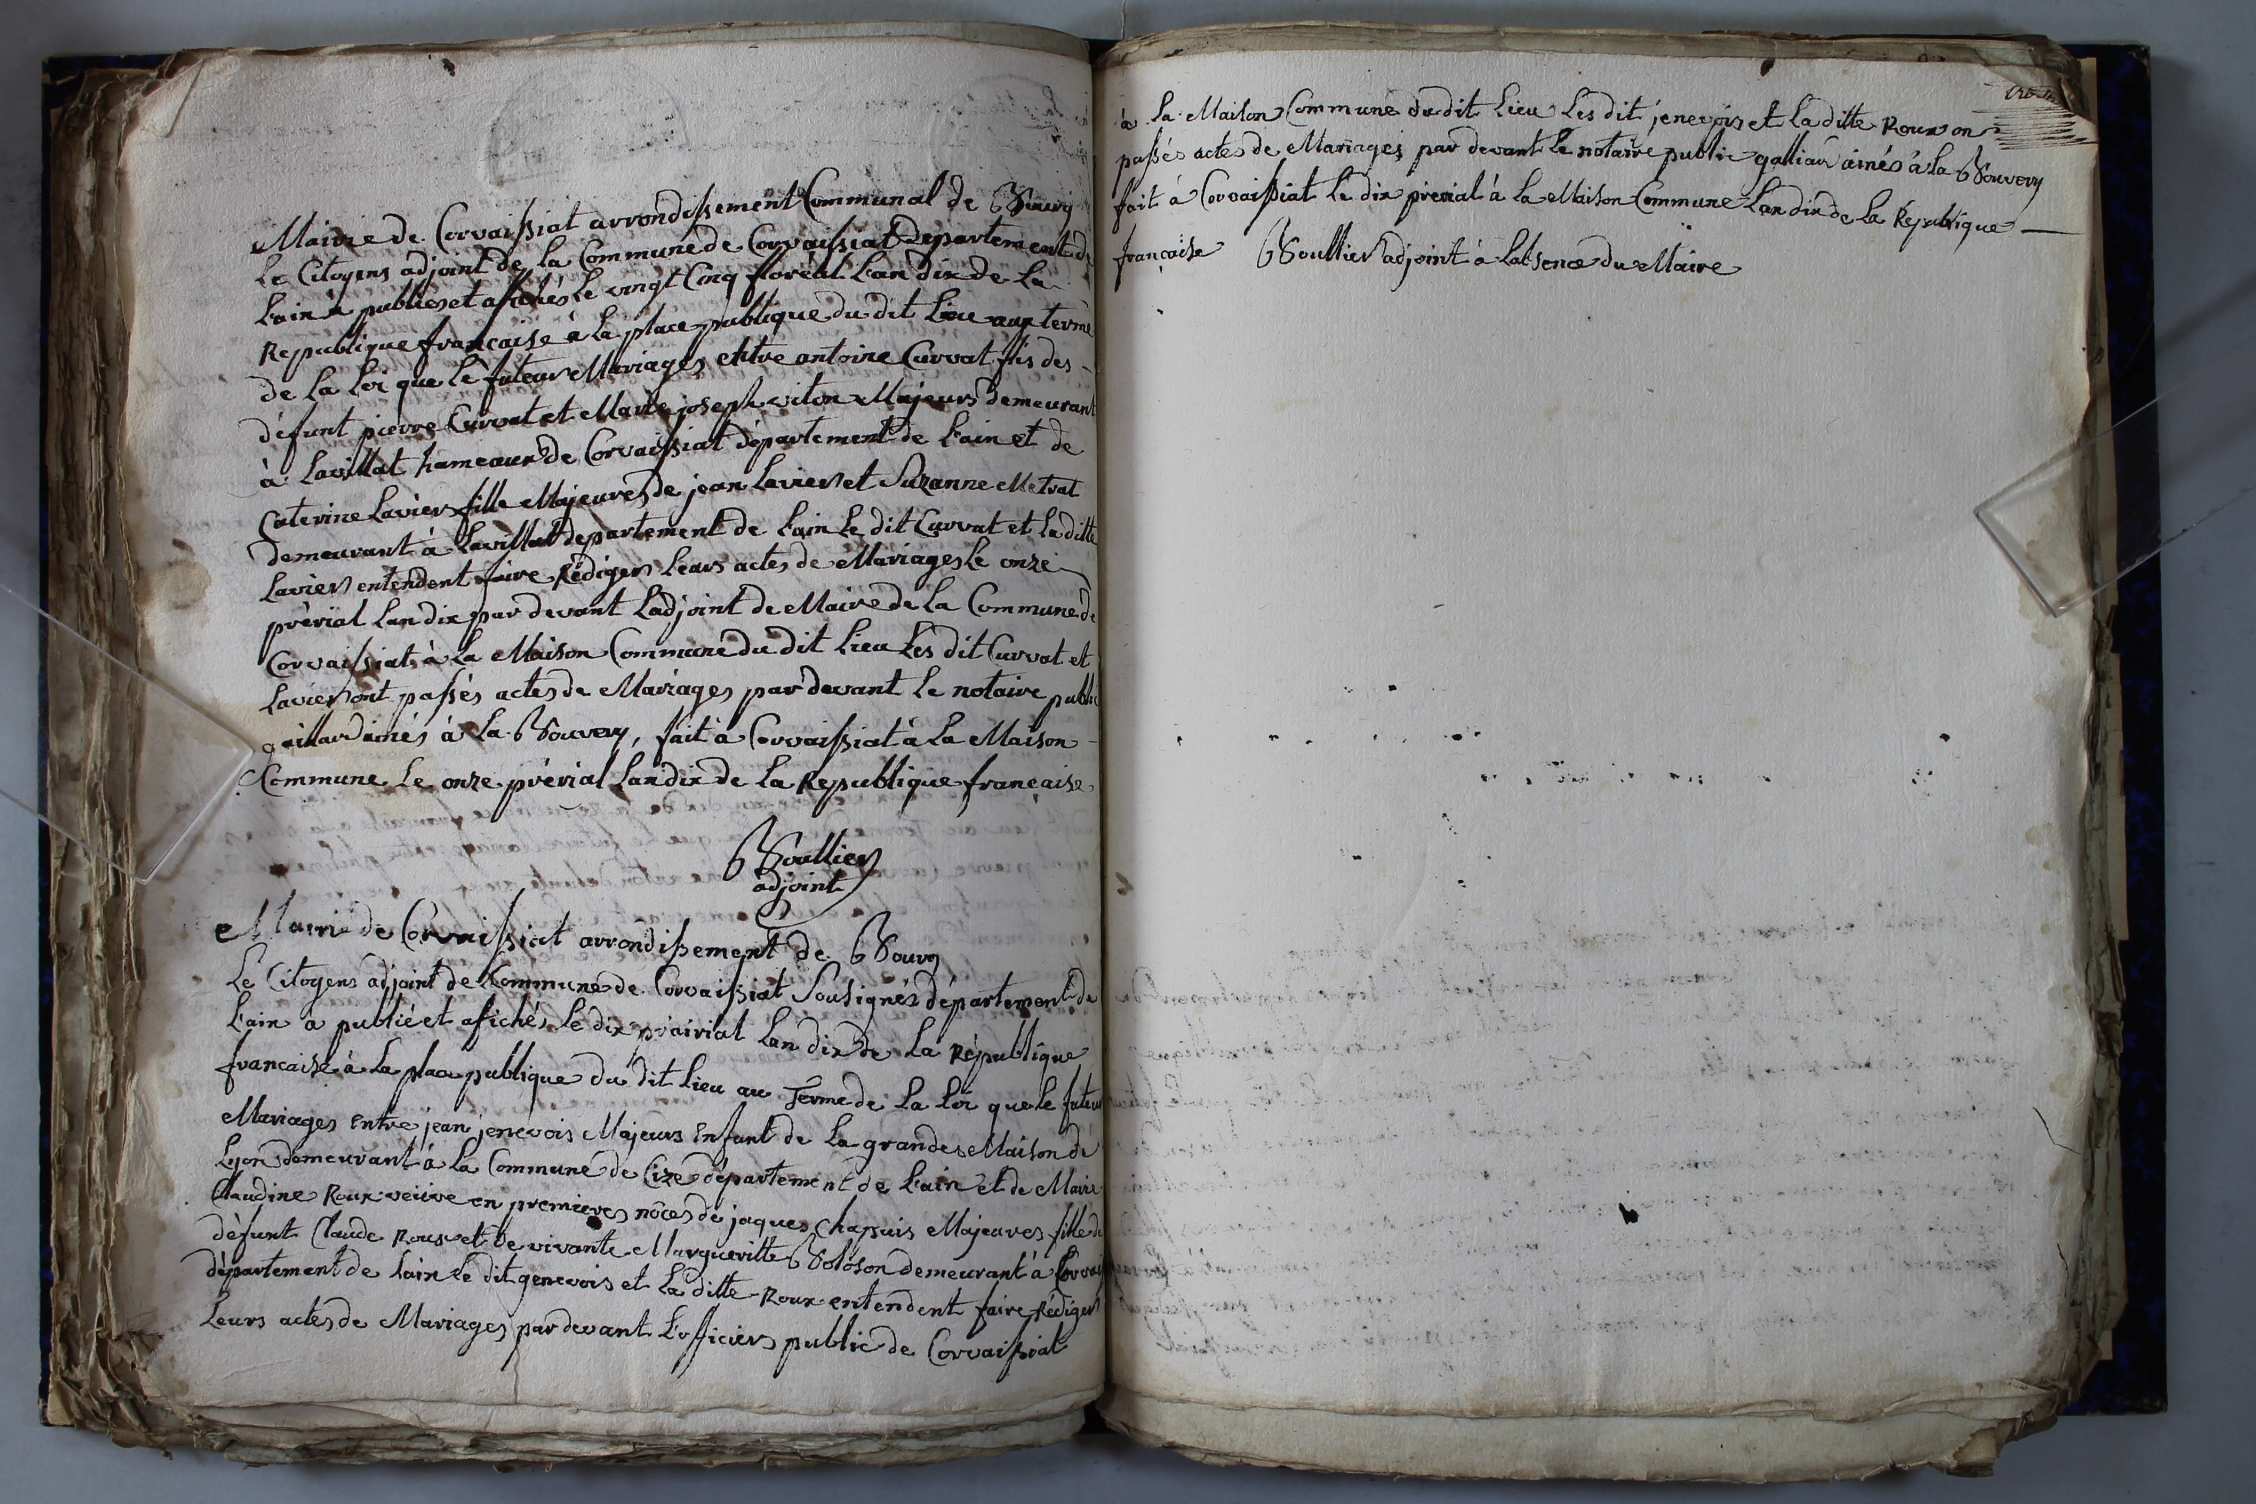 Mairie de Corvaissiat arrondissement Communal de Bourg
Le Citoyens adjoint de la Commune de Corvaissiat Departement de
Lain à publiés et afichés le vingt Cinq floréal Lan dix de La
Republique francaise à la place publique du dit Lieu aux terme
de La Loi que le futeur Mariages entre antoine Curvat fils des
défunt pierre Curvat et Marie joseph viton Majeurs demeurant
à Lavillat hameaux de Corvaissiat département de Lain et de
Caterine Laviers fille Majeures de jean Laviers et Suzanne Metrat
demeurant à Lavillat departement de Lain Le dit Curvat et La ditte
Laviers entendent faire Rédigers Leurs actes de Mariages Le onze
prérial Lan dix par devant Ladjoint de Maire de La Commune de
Corvaissiat à La Maison Commune du dit Lieu Les dit Curvat et
Laviers ont passés actes de Mariages par devant Le notaire public
gaillard ainés à La Bouvery, fait à Corvaissiat à La Maison
Commune Le onze prérial Lan dix de La Republique francaise
Boulliers
adjoint
Mairie de Corvaissiat arrondissement de Bourg
Le Citoyens adjoint de Commune de Corvaissiat Sousignés département de
Lain à publié et afichés Le dix prairial Lan dix de La République
francaise à La place publique du dit Lieu au Terme de La Loi que Le futeur
Mariages Entre jean jenevois Majeurs Enfant de La grandes Maison de
Lyon demeurant à La Commune de Cize département de Lain et de Marie
Claudine Roux veuve en premieres nôces de jaques Chapuis Majeures fille de
défunt Claude Roux et de vivante Margueritte Boloson demeurant à Corvaissiat
département de Lain Le dit genevois et La ditte Roux entendent faire Rédigers
Leurs actes de Mariages par devant Lofficiers public de Corvaissiat
à La Maison Commune du dit Lieu Les dit jenevois et La ditte Roux on
passés actes de Mariages par devant Le notaire public galliard ainés à La Bouvery
fait à Corvaissiat Le dix prérial à La Maison Commune Lan dix de La République
francaise Boullier adjoint à Labsence du Maire